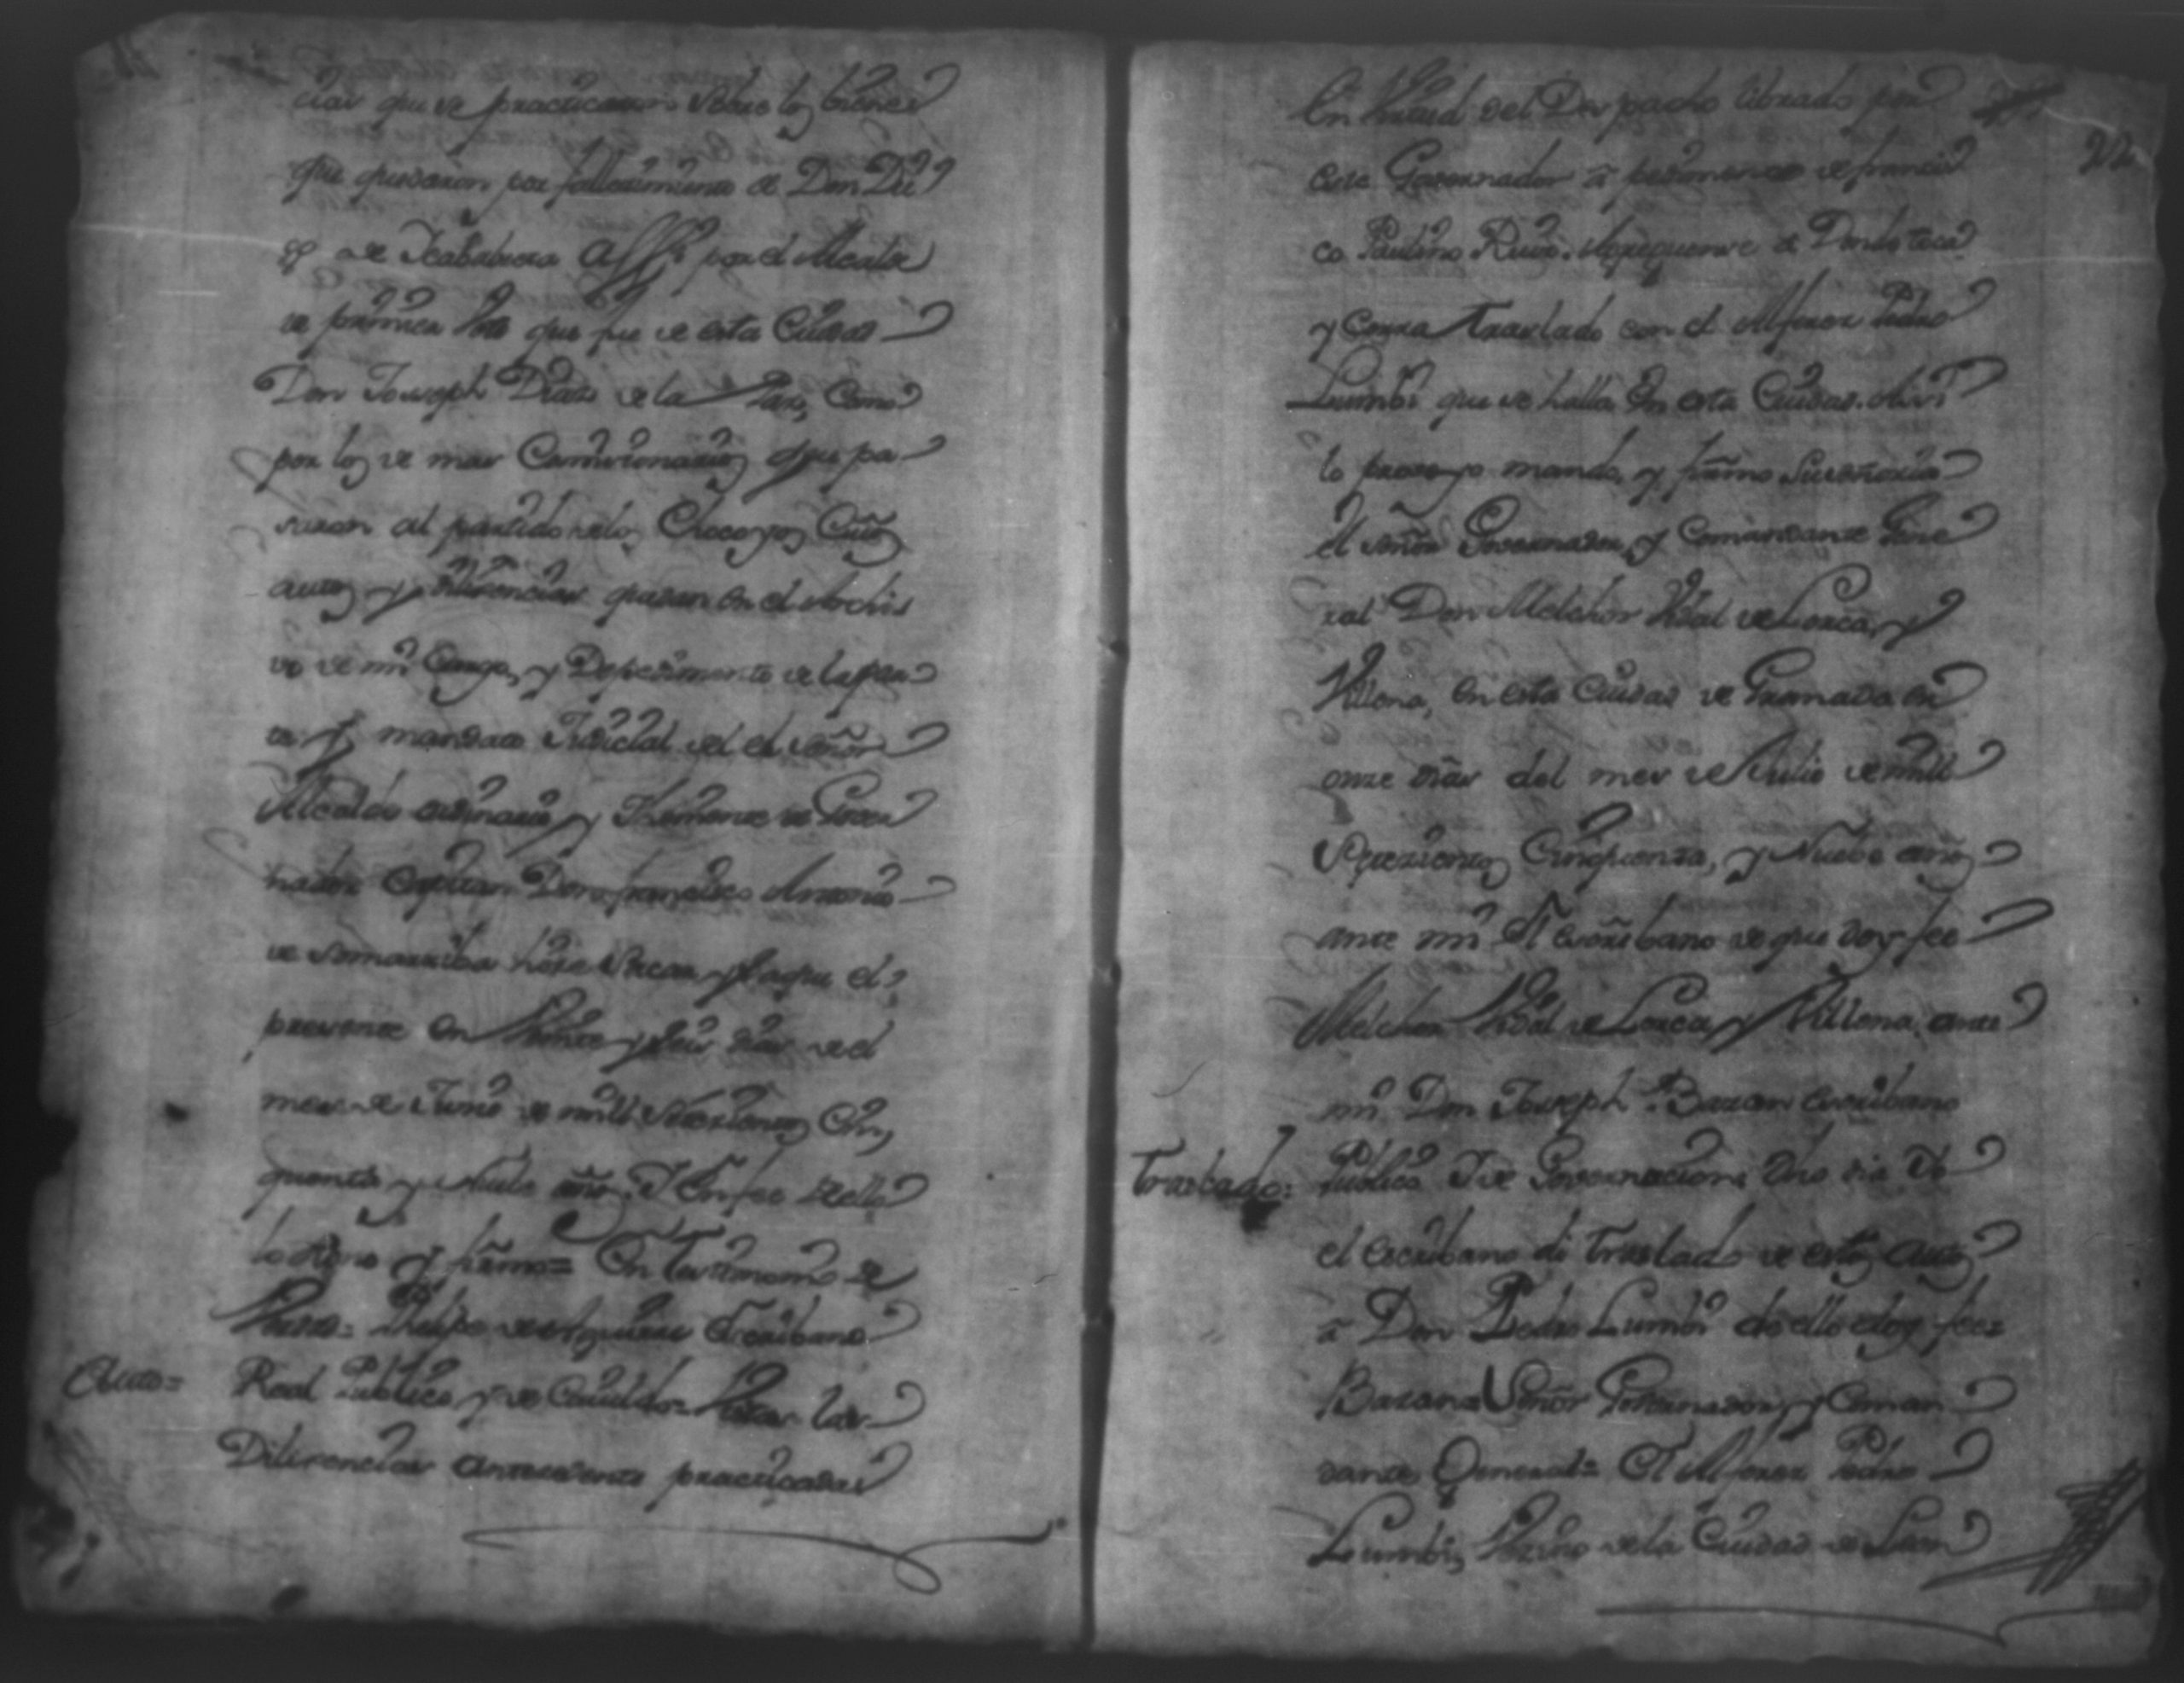 cias que se practicaron sobre los bienes
que quedaron por fallecimiento de Don Die
go de assi por el Alcalde
de primer Voto que fue de esta Ciudad
Don Joseph Diaz de la Paz, Como
por los de mas Comicionarios que pa
saron al partido de los Chocoyos Cuios
autos y dilixencias quedan en el Archi
vo de mi Cargo, y De pedimento de la par
te y mandato Judicial del el señor
Alcalde ordinario y Theniente de Gover
nador Capitan Don Francisco Antonio
de Somarriba hise Sacar el
presente En Veinte y seis dias del
mes de Junio de mill Setesientos Cin
quenta y Nuebe años. I En fee de ello
lo signo y firmo= En testimonio de
Verdad= Escribano
Auto= Real Publico y de Cavildo= Vistas las
Dilixencias antecedentes practicadas
En Virtud del Despacho librado por
este Governador a pedimento de Francis
co Paulino Ruiz. Agreguense a Donde toca
y Corra Traslado con el Alferez Pedro
Lumbi que se halla En esta Ciudad. Assi
lo proveyo mando, y firmo Suseñoria
el señor Governador, y Comandante Gene
ral Don Melchor Vidal de Lorca, y
Villena, en esta Ciudad de Granada en
onze dias del mes de Julio de mill
Setesientos Cinquenta, y Nuebe años
ante mi El escribano de que doy fee
Melchor Vidal de Lorca, y Villena, ante
mi Don Joseph Bazan escribano
Traslado= Publico I de Governacion= Dho dia Io
el Escribano di traslado de estos autos
a Don Pedro Lumbi de ello doy fee=
Bazan= Señor Governador, y Coman
dante General= El Alferez Pedro
Lumbi, Vezino de la Ciudad de Leon